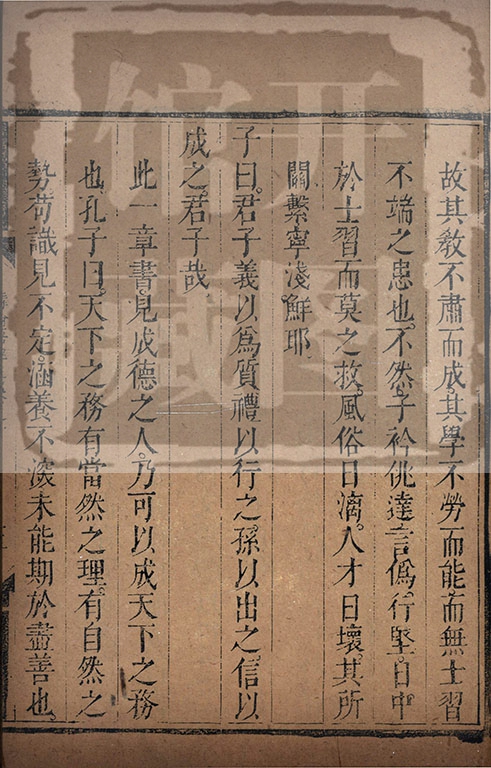 故其敎不肅而成其學不勞而能而無士習
不端之患也不然子衿佻達言僞行堅日中
於士習而莫之救風俗日漓人才日壞其所
關繫寧淺鮮耶
子曰君子義以爲質禮以行之孫以出之信以
成之君子哉
此一章書見成德之人乃可以成天下之務
也孔子曰天下之務有當然之理有自然之
勢苟識見不定涵養不深未能期於盡善也